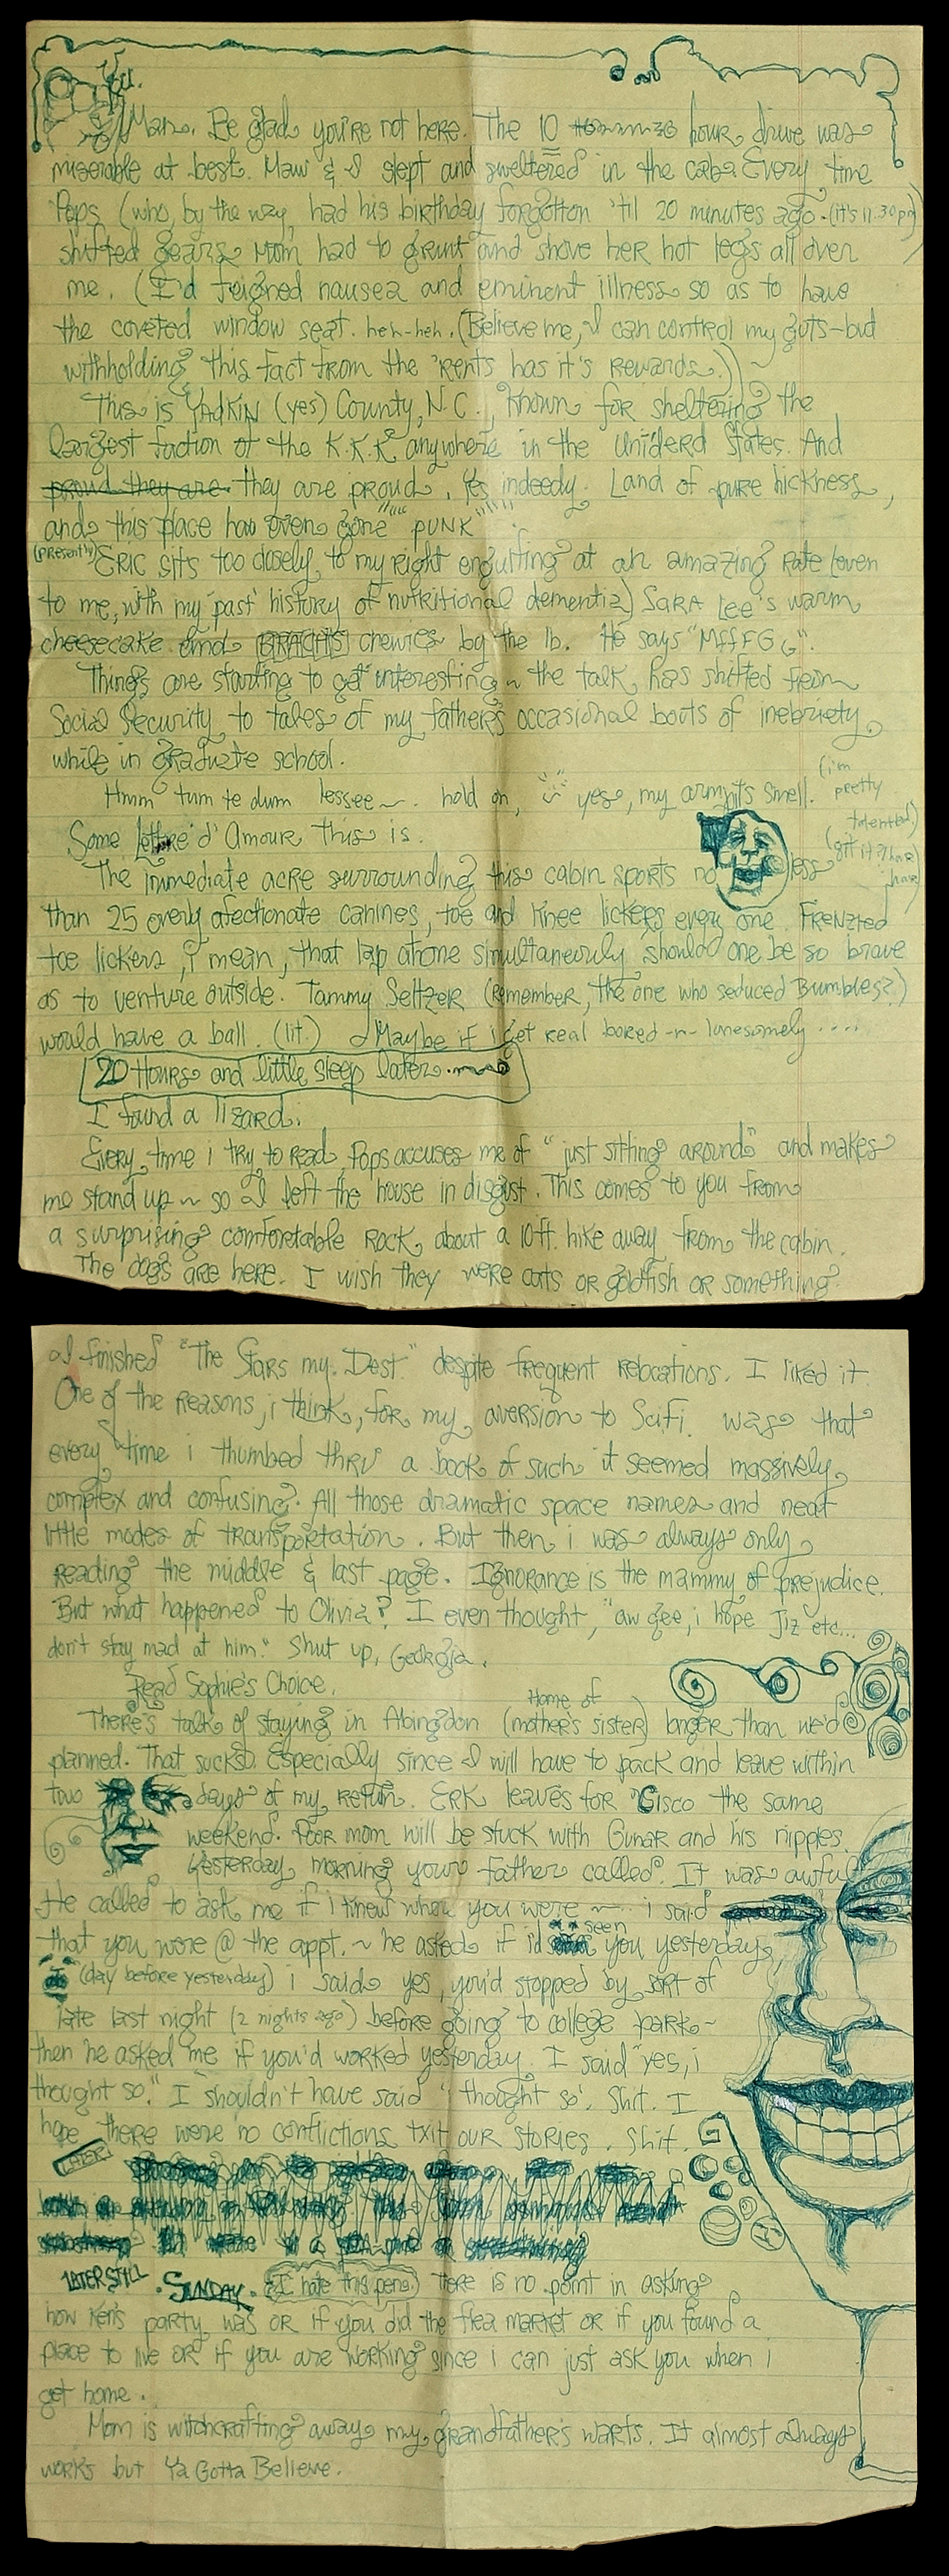 Man. Be glad you're not here. The 10 hour drive was
miserable at best. Maw & I slept and sweltered in the cab. Every time
Pops (who, by the way, had his birthday forgotton 'til 20 minutes ago - (it's 11:30 pm)
shifted gears Mom had to grunt and shove her hot legs all over
me. (I'd feigned nausea and eminent illness so as to have
the coveted window seat. heh-heh. (Believe me, I can control my guts - but
withholding this fact from the 'rents has it's rewards.))
This is YADKIN (yes) County, N.C., known for sheltering the
largest faction of the K.K.K. anywhere in the Uniderd States. And
proud they are. they are proud. Yes indeedy. Land of pure hickness,
and this place has even gone "PUNK"
(presently) ERIC sits too closely to my right engulfing at an amazing rate (even
to me, with my 'past' history of nutritional dementia) SARA Lee's warm
cheesecake and BRACHS chewies by the lb. He says "MFFFGG".
Things are starting to get interesting ~ the talk has shifted from
Social Security to tales of my father's occasional bouts of inebriety
while in graduate school.
Hmm tum te dum lessee ~. hold on, yes, my armpits smell. (i'm
pretty
talented)
Some lettre d'Amour this is.
(git it? har
har)
The immediate acre surrounding this cabin sports no less
than 25 overly afectionate canines, toe and knee lickers every one. FRENZIED
toe lickers, i mean, that lap atone simultaneously should one be so brave
as to venture outside. Tammy Seltzer (remember, the one who seduced Bumbles?)
would have a ball. (lit.) Maybe if i get real bored -n- lonesomely ....
20 Hours and little sleep later....
I found a lizard.
Every time i try to read, Pops accuses me of "just sitting around" and makes
me stand up ~ so I left the house in disgust. This comes to you from
a surprising comfortable rock, about a 10 ft. hike away from the cabin.
The dogs are here. I wish they were cats or goldfish or something.
I finished "The Stars my Dest." despite frequent relocations. I liked it.
One of the reasons, i think, for my aversion to SciFi. was that
every time i thumbed thru a book of such it seemed massively
complex and confusing. All those dramatic space names and neat
little modes of transportation. But then i was always only
reading the middle & last page. Ignorance is the mammy of prejudice.
But what happened to Olivia? I even thought, "aw gee, i hope Jiz etc...
don't stay mad at him." Shut up, Georgia.
Read Sophie's Choice.
There's talk of staying in Abingdon (Home of mother's sister) longer than we'd
planned. That sucks. Especially since I will have to pack and leave within
two days of my return. ERK leaves for 'Cisco the same
weekend. Poor mom will be stuck with Gunar and his nipples.
Yesterday morning your father called. It was awful.
He called to ask me if i knew where you were ~ i said
that you were @ the appt. ~ he asked if i'd seen you yesterday
(day before yesterday) i said yes, you'd stopped by sort of
late last night (2 nights ago) before going to college park ~
then he asked me if you'd worked yesterday. I said "yes, i
thought so." I shouldn't have said 'i thought so'. Shit. I
hope there were no conflictions txit our stories. Shit.
LATER
LATER STILL. SUNDAY. (I hate this pen.) There is no point in asking
how Ken's party was or if you did the flea market or if you found a
place to live or if you are working since i can just ask you when i
get home.
Mom is witchcrafting away my grandfather's warts. It almost always
works but Ya Gotta Believe.